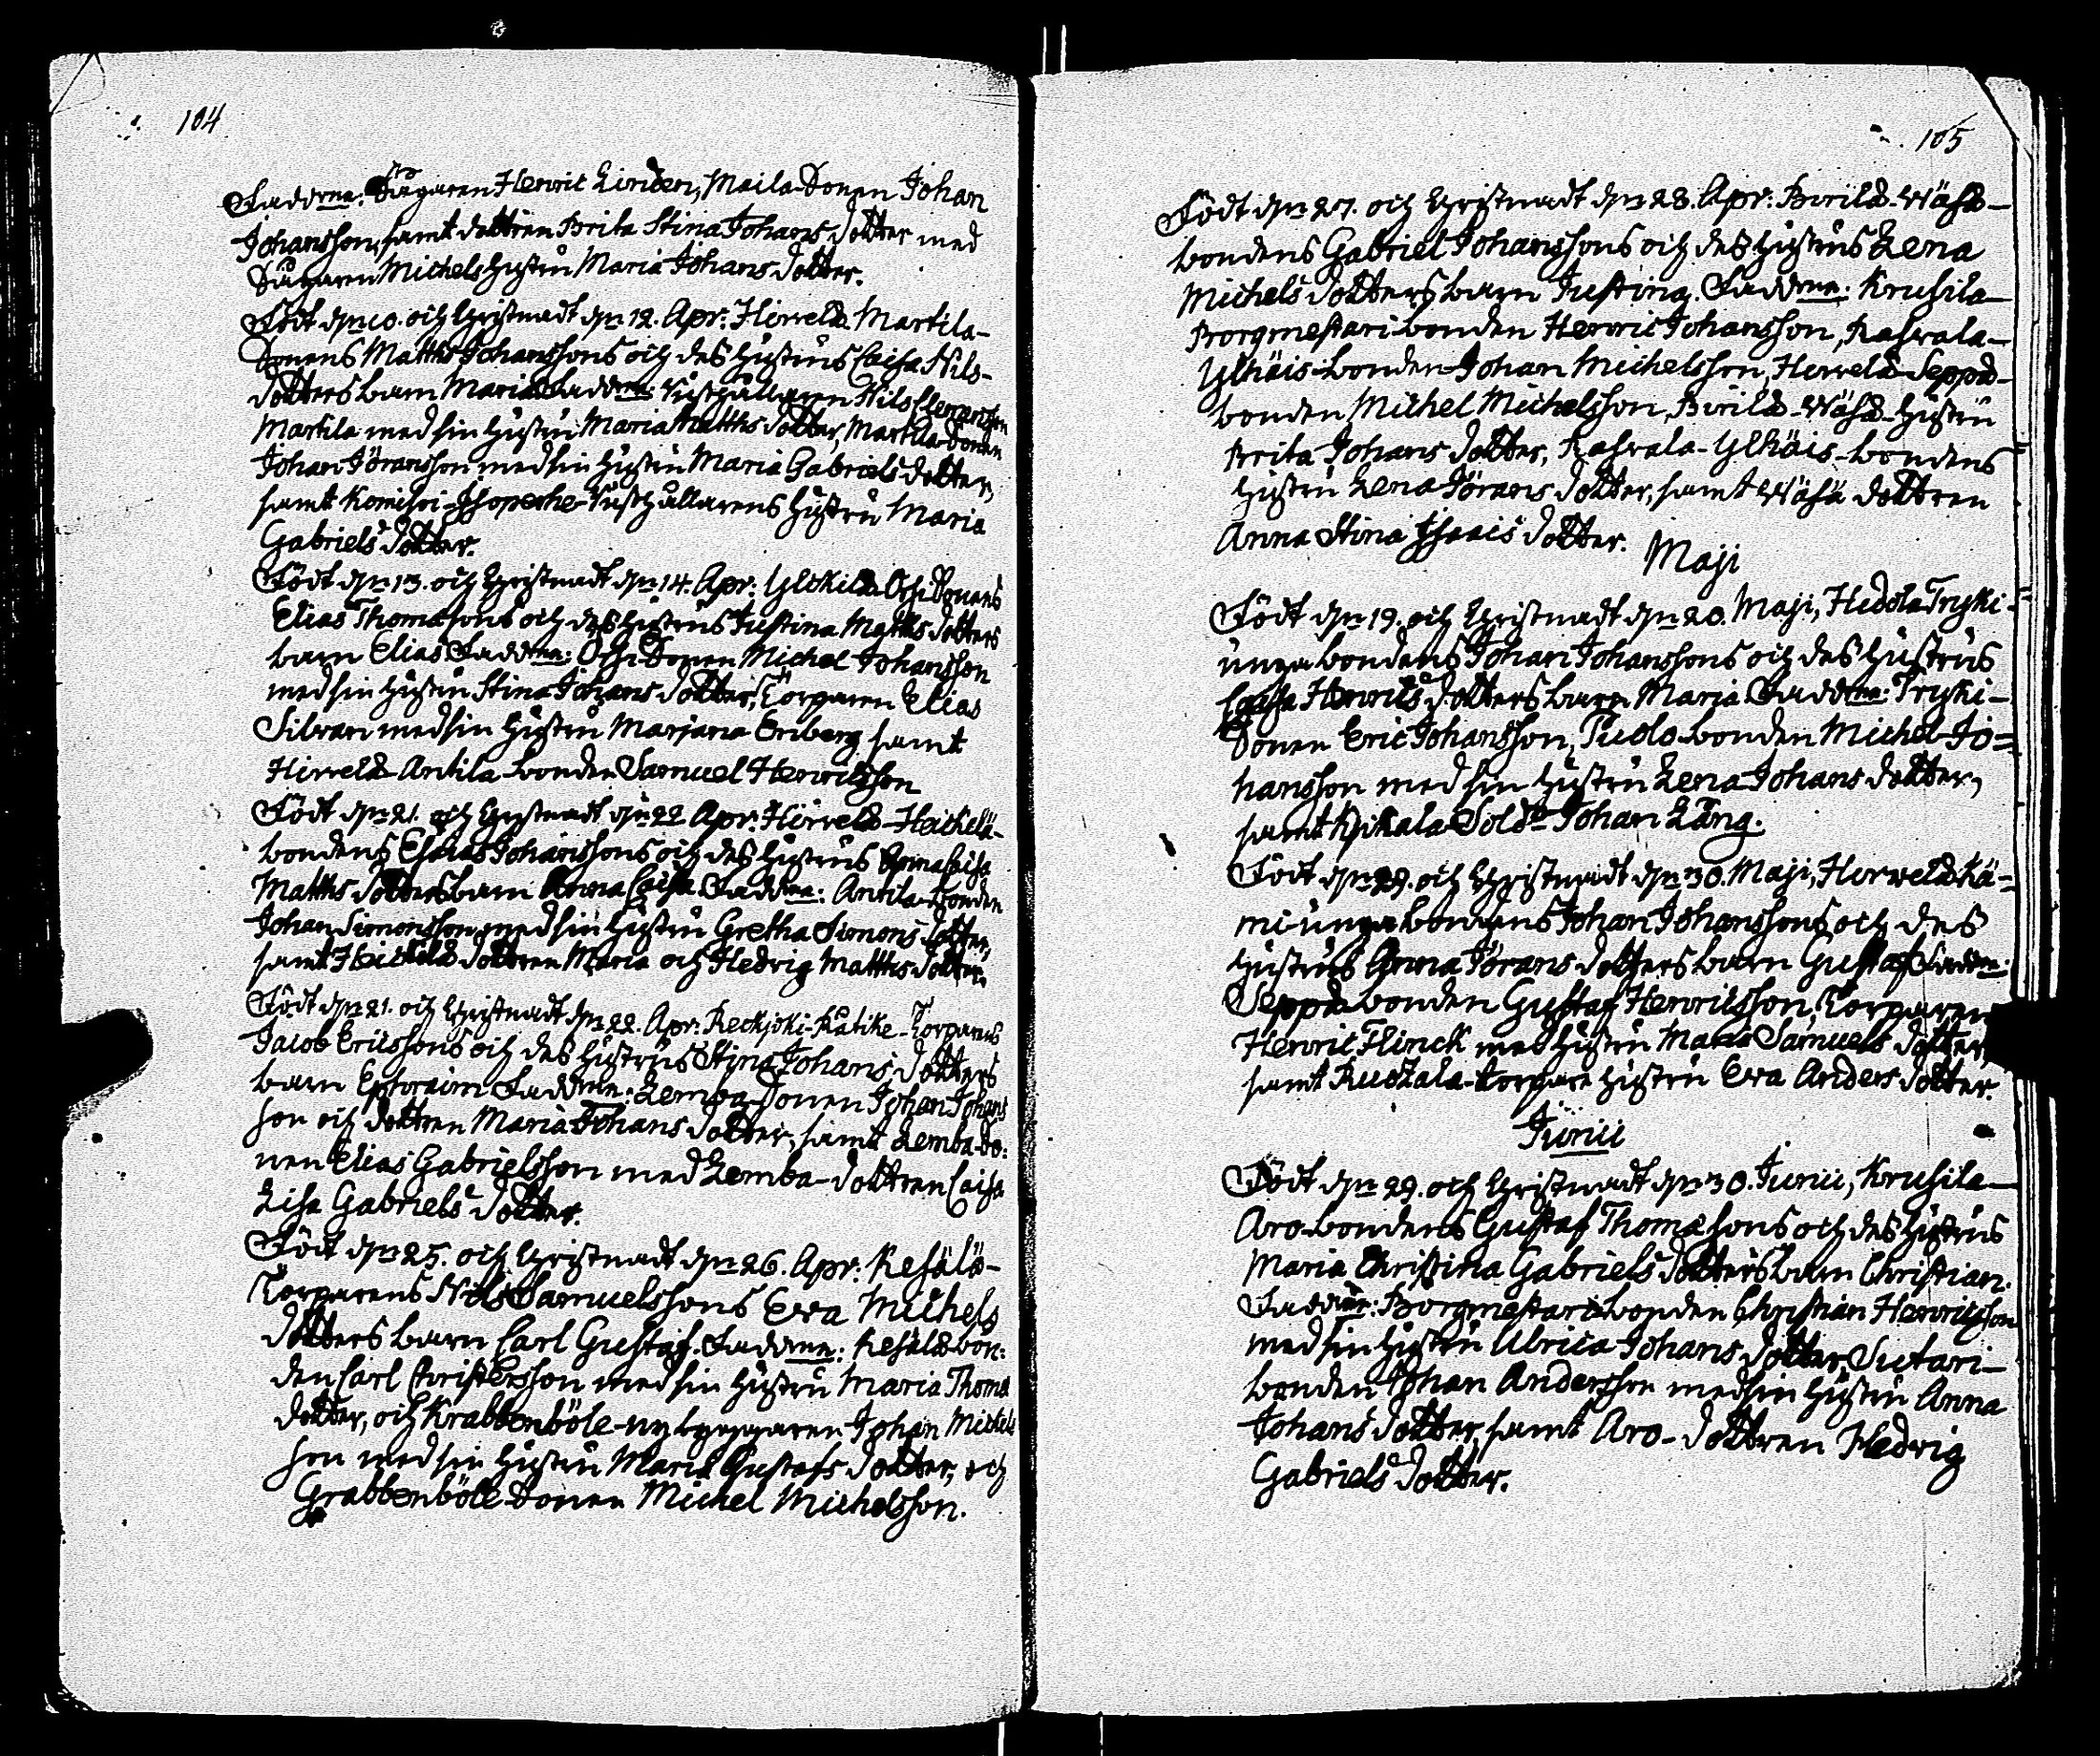 104
Faddrne: Sågaren Henric Linden, Maila-Sonen Johan
Johansson, samt dottren Brita Stina Johans dotter med
Sågaren Michels hustru Maria Johans dotter.
Född d. 10. och Christnadt d. 12. Apr: Hirvelä Martila-
Sonens Matths Johanssons och des hustrus Caisa Nils-
dotters barn Maria Faddrne: Rusthållaren Nils Clemensson
Martila med sin hustru Maria Matths dotter, Martila-Sonen
Johan Jöransson med sin hustru Maria Gabriels dotter,
samt Komisoi- Rusthållarens hustru Maria
Gabriels dotter.
Född d. 13. och Christnadt d. 14. Apr: Sonens
Elias Thomæsons och des hustrus Justina Matths dotters
barn Elias Faddrne: Sonen Michel Johansson
med sin hustru Stina Johans dotter, Torparen Elias
Silvan med sin hustru Marjana Enberg samt
Hirvelä-Antila-bonden Samuel Henricsson
Född d. 21. och Christnadt d. 22 Apr: Hirvelä-Heickelä-
bondens Esaias Johanssons och des hustrus Anna Caisa
Matths dotters barn Anna Caisa Faddrne: Antila-bonden
Johan Simonsson med sin hustru Gretha Simons dotter,
samt Heickilä dottren Maria och Hedvig Matths dotter.
Född d. 21. och Christnadt d. 22. Apr: Reckjoki-Kutike-Torparens
Jacob Ericssons och des hustrus Stina Johans dotters
barn Ephraim Faddrne: Lemba-Sonen Johan Johans
son och dottren Maria Johans dotter, samt Lemba-So:
nen Elias Gabrielsson med Lemba-dottren Caisa
Lisa Gabriels dotter.
Född d. 25. och Christnadt d. 26. Apr: Kesälä-
Torparens Nils Samuelssons Eva Michels
dotters barn Carl Gustaf. Faddrne: Kesälä bon:
den Carl Christersson med sin hustru Maria Thomæ
dotter, och Krabbenböle-nybyggaren Johan Michels
son med sin hustru Maria Gustafs dotter, och
Grabbenböle Sonen Michel Michelsson.
105
Född d. 27. och Christnadt d. 28. Apr: Pirilä-Wäsä-
bondens Gabriel Johanssons och des hustrus Lena
Michels dotters barn Justina. Faddrne: Krusila-
Borgmestari bonden Henric Johansson, Rasvala-
Ylhäis-bonden Johan Michelsson, Hervelä-Seppä-
bonden Michel Michelsson, Pirilä-Wäsä-hustru
Brita Johans dotter, Rasvala-Ylhäis-bondens
hustru Lena Jörans dotter, samt Wäsä dottren
Anna Stina Isaacs dotter.
Maji
Född d. 19. och Christnadt d. 20. Maji, Heddla Tryski-
unga bondens Johan Johanssons och des hustrus
Caisa Henrics dotters barn Maria Faddrne: Tryski-
Sonen Eric Johansson, Pudlo-bonden Michel Jo=
hansson med sin hustru Lena Johans dotter,
samt Kikala Sold: Johan Lång.
Född d. 29. och Christnadt d. 30. Maji, Hervelä Kä-
mi-unga bondens Johan Johanssons och des
hustrus Anna Jörans dotters barn Gustaf Faddrne:
Seppä bonden Gustaf Henricsson, Torparen
Henric Flinck med hustru Maria Samuels dotter,
samt Ruotzala-torpare hustru Eva Anders dotter.
Junii
Född d. 29. och Christnadt d. 30. Junii, Krusila-
Aro-bondens Gustaf Thomæsons och des hustrus
Maria Christina Gabriels dotters barn Christian.
Faddrne: Borgmestari bonden Christian Henricsson
med sin hustru Ulrica Johans dotter, Sutari-
bonden Johan Andersson med sin hustru Anna
Johans dotter, samt Aro-dottren Hedvig
Gabriels dotter.